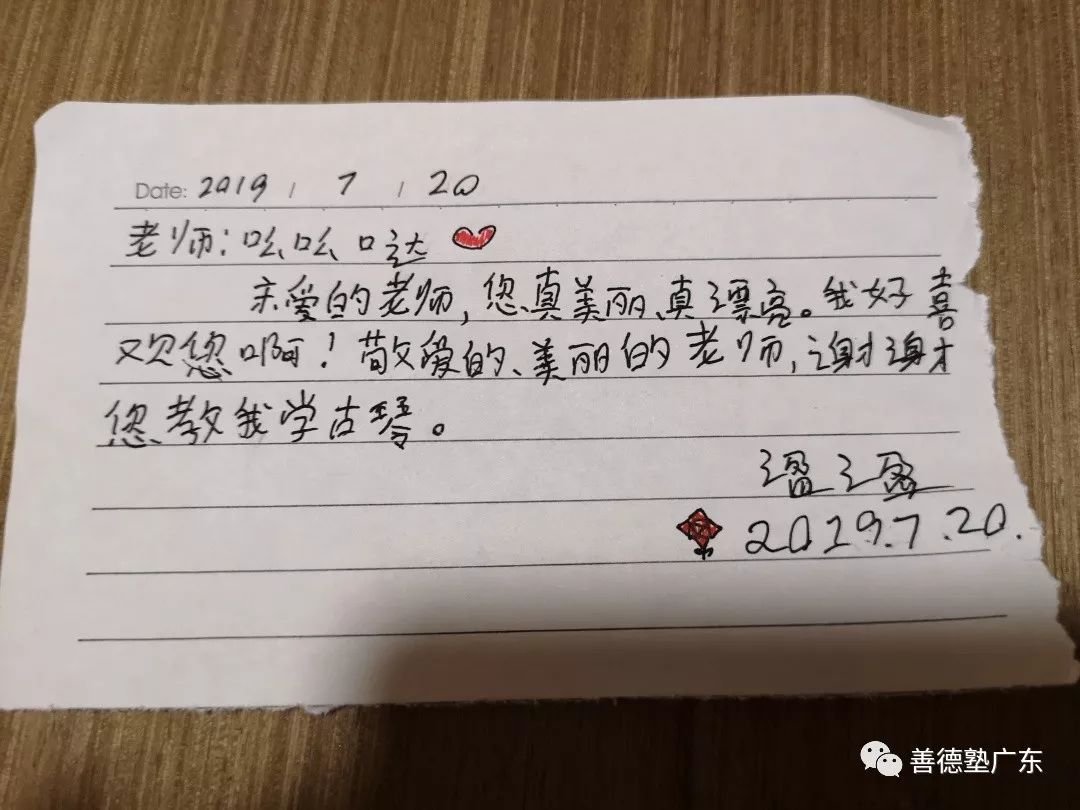 Date: 2019 / 7 / 20
老师:吆吆口达
亲爱的老师,您真美丽、真漂亮。我好喜
欢您啊!敬爱的、美丽的老师,谢谢
您教我学古琴。
2019.7.20.
善德塾广东